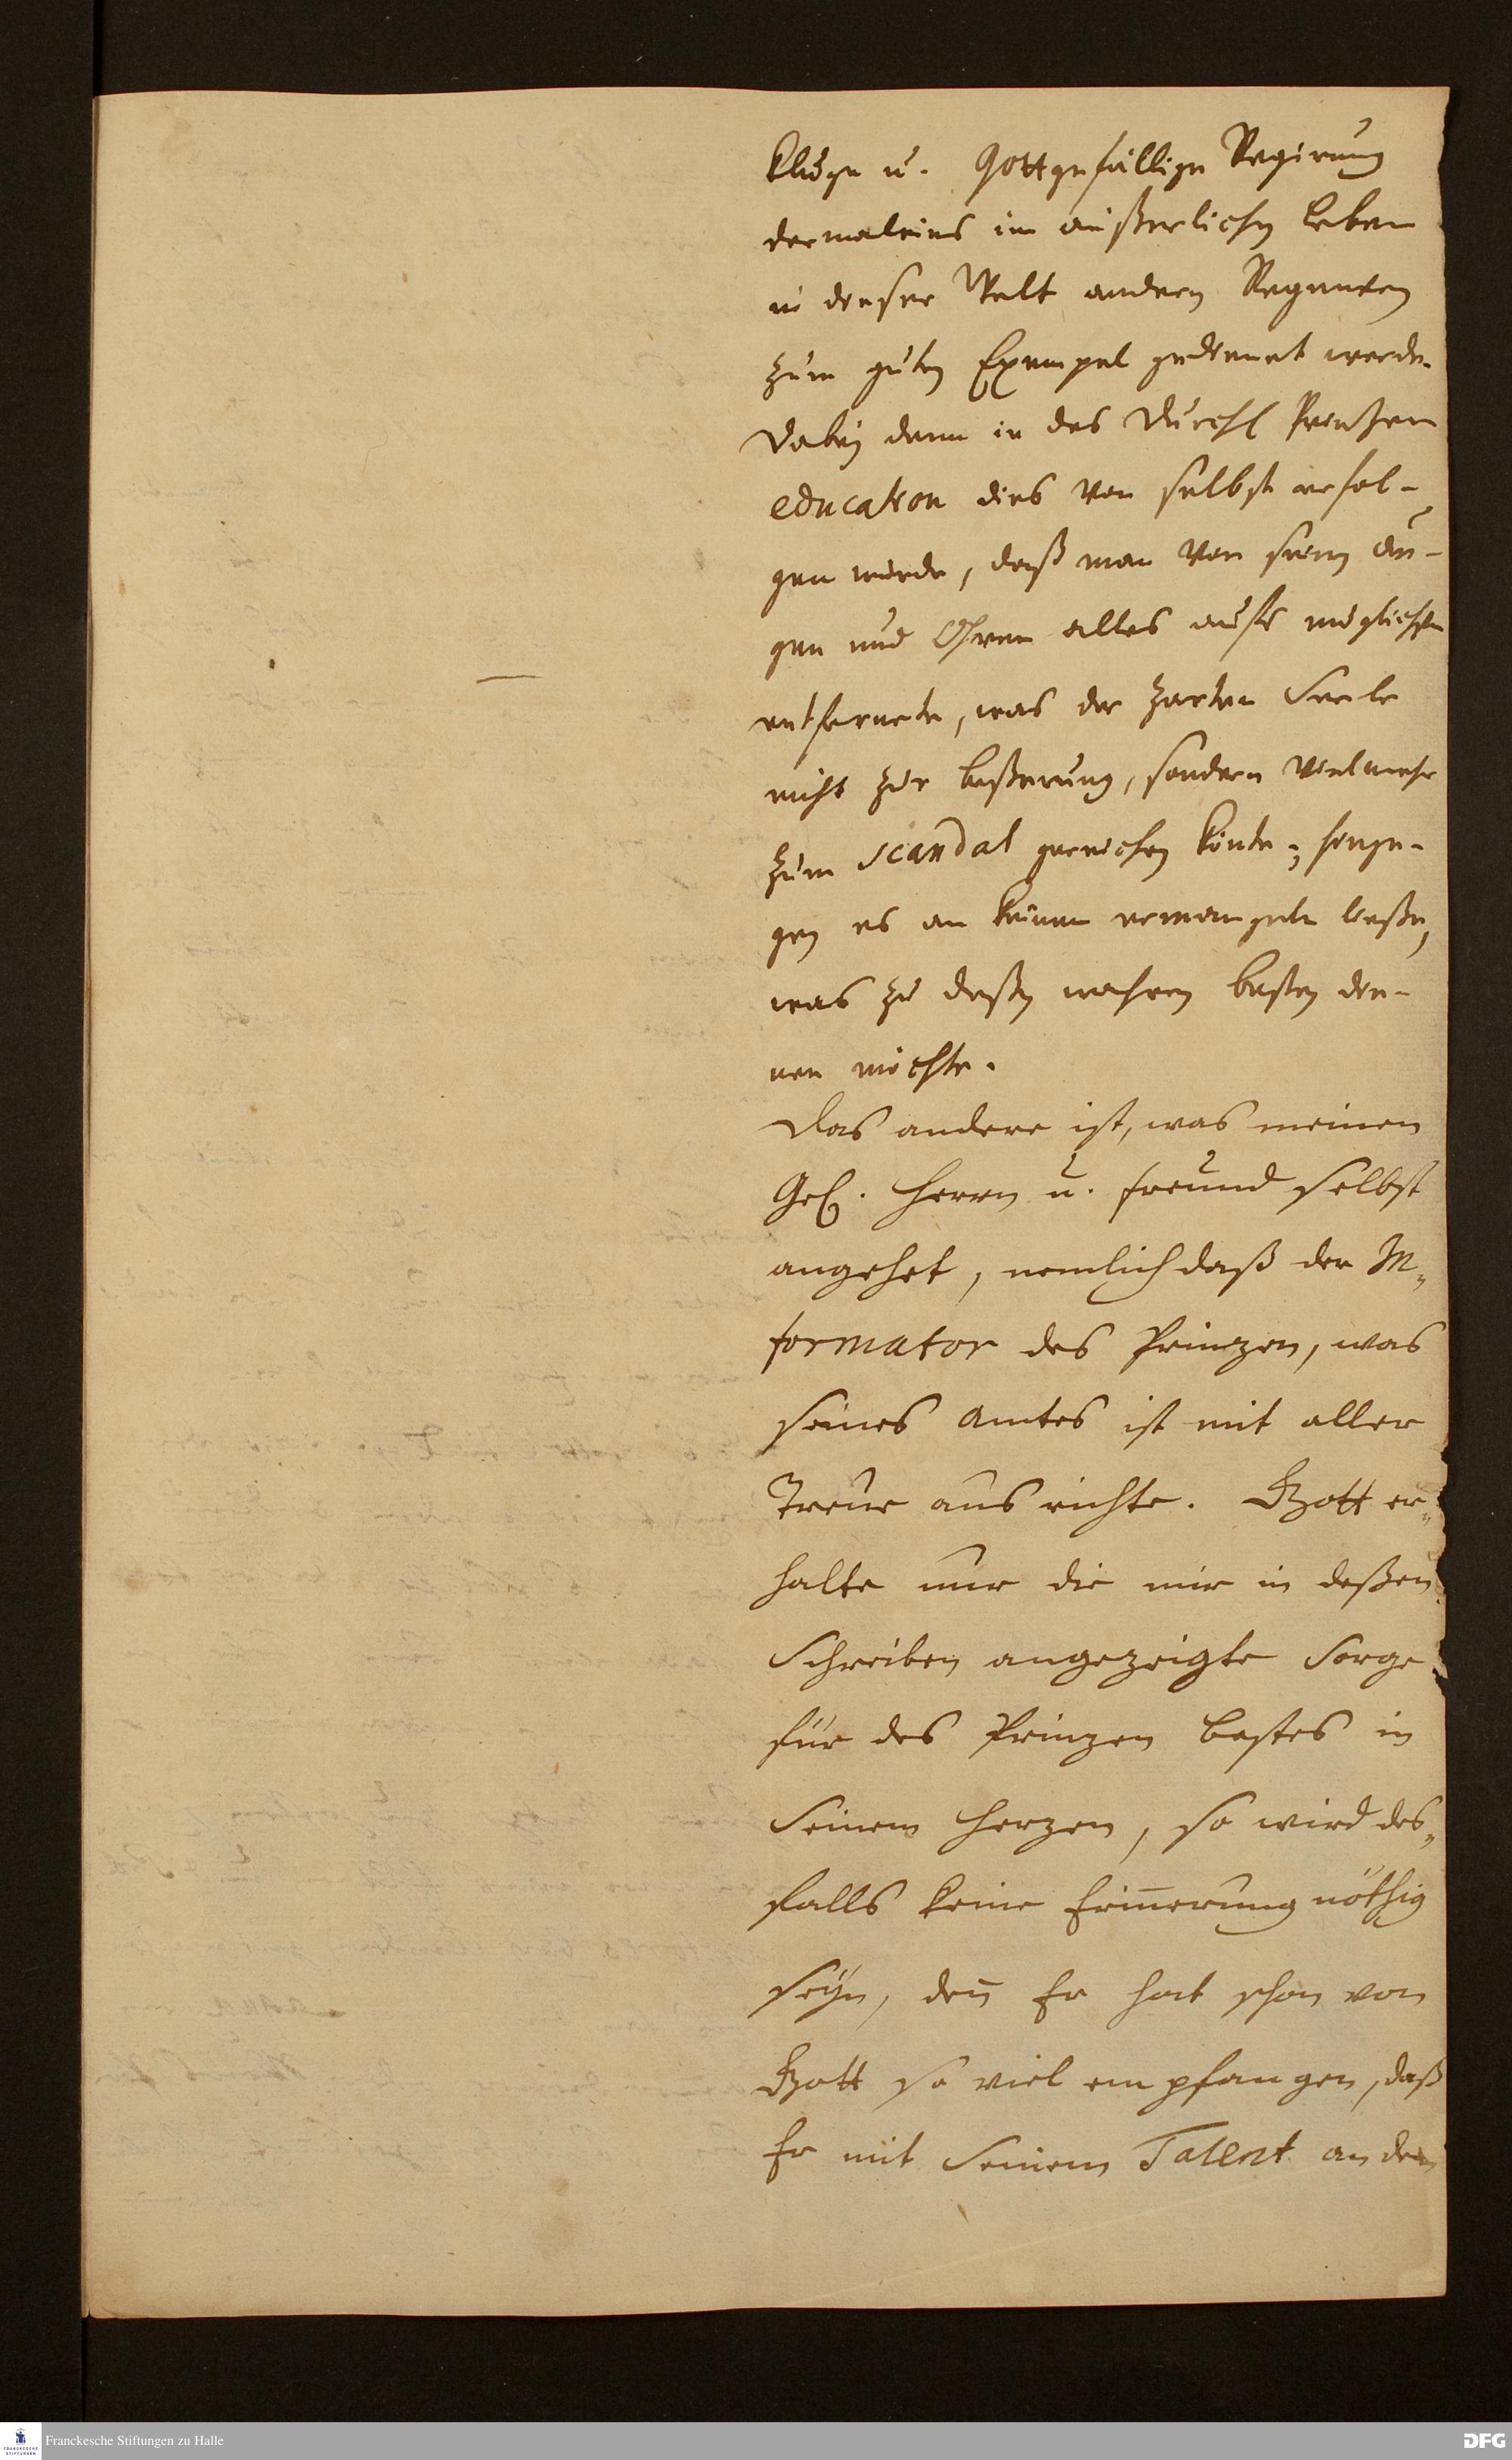 kluge u. Gottgefällige Regirung
dermaleins im äußerlichen Leben
in dieser Welt andern Regenten
zum guten Exempel gedienet werde.
Dabey denn in des Durchl Printzen
education dies von selbst erfol-
gen würde, daß man von seinen Au-
gen und Ohren alles aufs möglichste
entfernete, was der zarten Seele
nicht zur beßerung, sondern vielmehr
zum scandal gereichen könte; hinge-
gen es an keinem ermangeln ließe,
was zu deßen wahren besten die-
nen möchte.
Das andere ist, was meinen
Gel. Herrn u. Freund selbst
angehet, nemlich daß der In-
formator des Prinzen, was
seines Amtes ist mit aller
Treue ausrichte. Gott er-
halte nur die mir in deßen
Schreiben angezeigte Sorge
für des Prinzen bestes in
Seinem Herzen, so wird des-
falls keine Erin̄erung nöthig
seyn, den̄ Er hat schon von
Gott so viel empfangen, daß
Er mit Seinem Talent an dem
Franckesche Stiftungen zu Halle
DFG